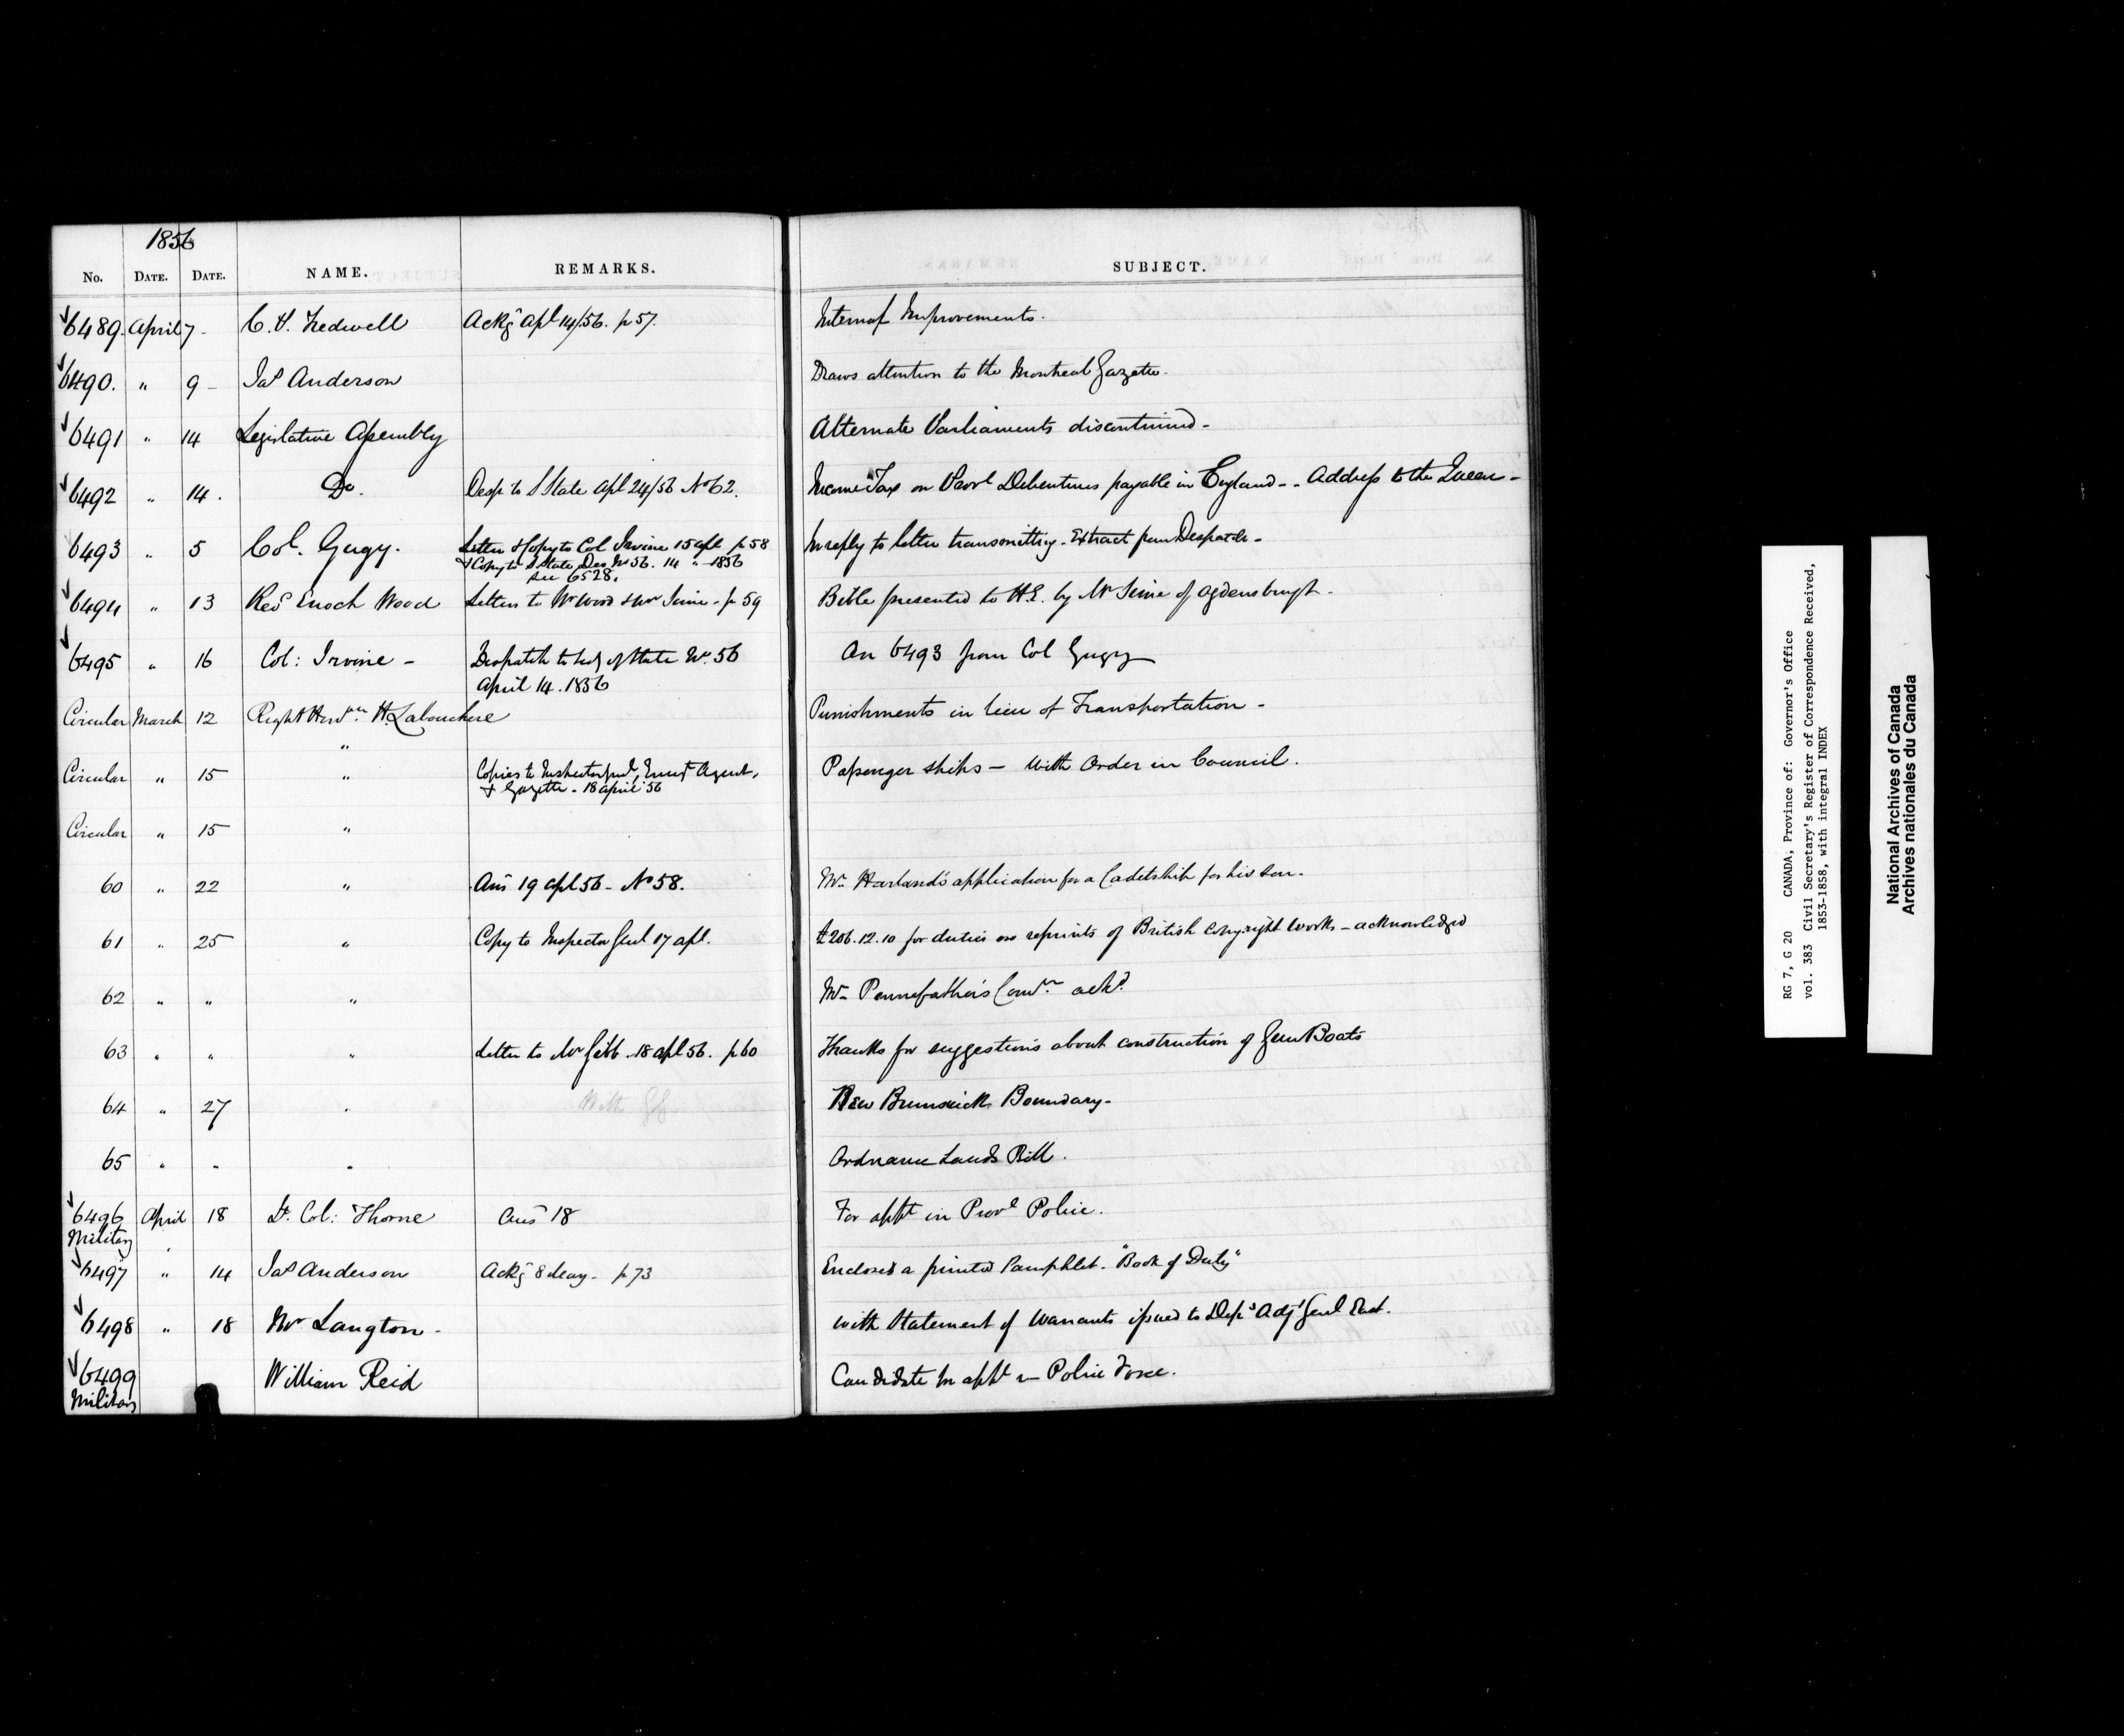 1856
No. DATE. DATE. NAME. REMARKS. SUBJECT.
6489. April 7 - C. V. Tredwell Ackg apl 14/56. p 57. Internal Improvements.
6490. " 9 - Jas Anderson Draws attention to the Montreal Gazette.
6491 " 14 Legislative Assembly Alternate Parliaments discontinued -
6492 " 14. Do. Desp to S State apl 24/56 No 62. Income Tax on Provl Debentures payable in England - - Address to the Queen -
6493 " 5 Col. Gugy. Letter & Copy to Col Irvine 15 apl p 58 In reply to letter transmitting Extract from Despatch -
& Copy to S State Des No 56. 14 " 1856
see 6528.
6494 " 13 Revd Enoch Wood Letters to Mr Wood & Mr - p 59 Bible presented to H.E. by Mr of Ogdensburgh -
6495 " 16 Col: Irvine - Despatch to Secy of State No. 56 On 6493 from Col Gugy
April 14. 1856
Circular March 12 Right Honble H. Labouchere Punishments in lieu of Transportation -
"
Circular " 15 " Copies to Inspector Genl, Emigt Agent, Passenger ships - With Order in Council.
& Gazette - 18 april 56
Circular " 15 "
60 " 22 " Ans 19 apl 56 - No 58. Mr Harland's application for a Cadetship for his son.
61 " 25 " Copy to Inspector Genl 17 apl. £206.12.10 for duties on reprints of British Copyright Works - acknowledged
62 " " " Mr Pennefather's ackd.
63 " " " Letter to Mr Gibb - 18 apl 56. p 60 Thanks for suggestions about construction of Gun Boats
64 " 27 " New Brunswick Boundary -
65 " " " Ordnance Lands Bill.
6496 April 18 Lt. Col: Thorne Ans 18 For appt in Provl Police.
Military
6497 " 14 Jas Anderson Ackg 8 May - p 73 Encloses a printed Pamphlet. "Book of Duty"
6498 " 18 Mr Langton - With Statement of Warrants issued to Depy Adjt Genl East.
6499 William Reid Candidate for appt in Police Force.
Military
RG 7, G 20 CANADA, Province of: Governor's Office
vol. 383 Civil Secretary's Register of Correspondence Received,
1853-1858, with integral INDEX
National Archives of Canada
Archives nationales du Canada